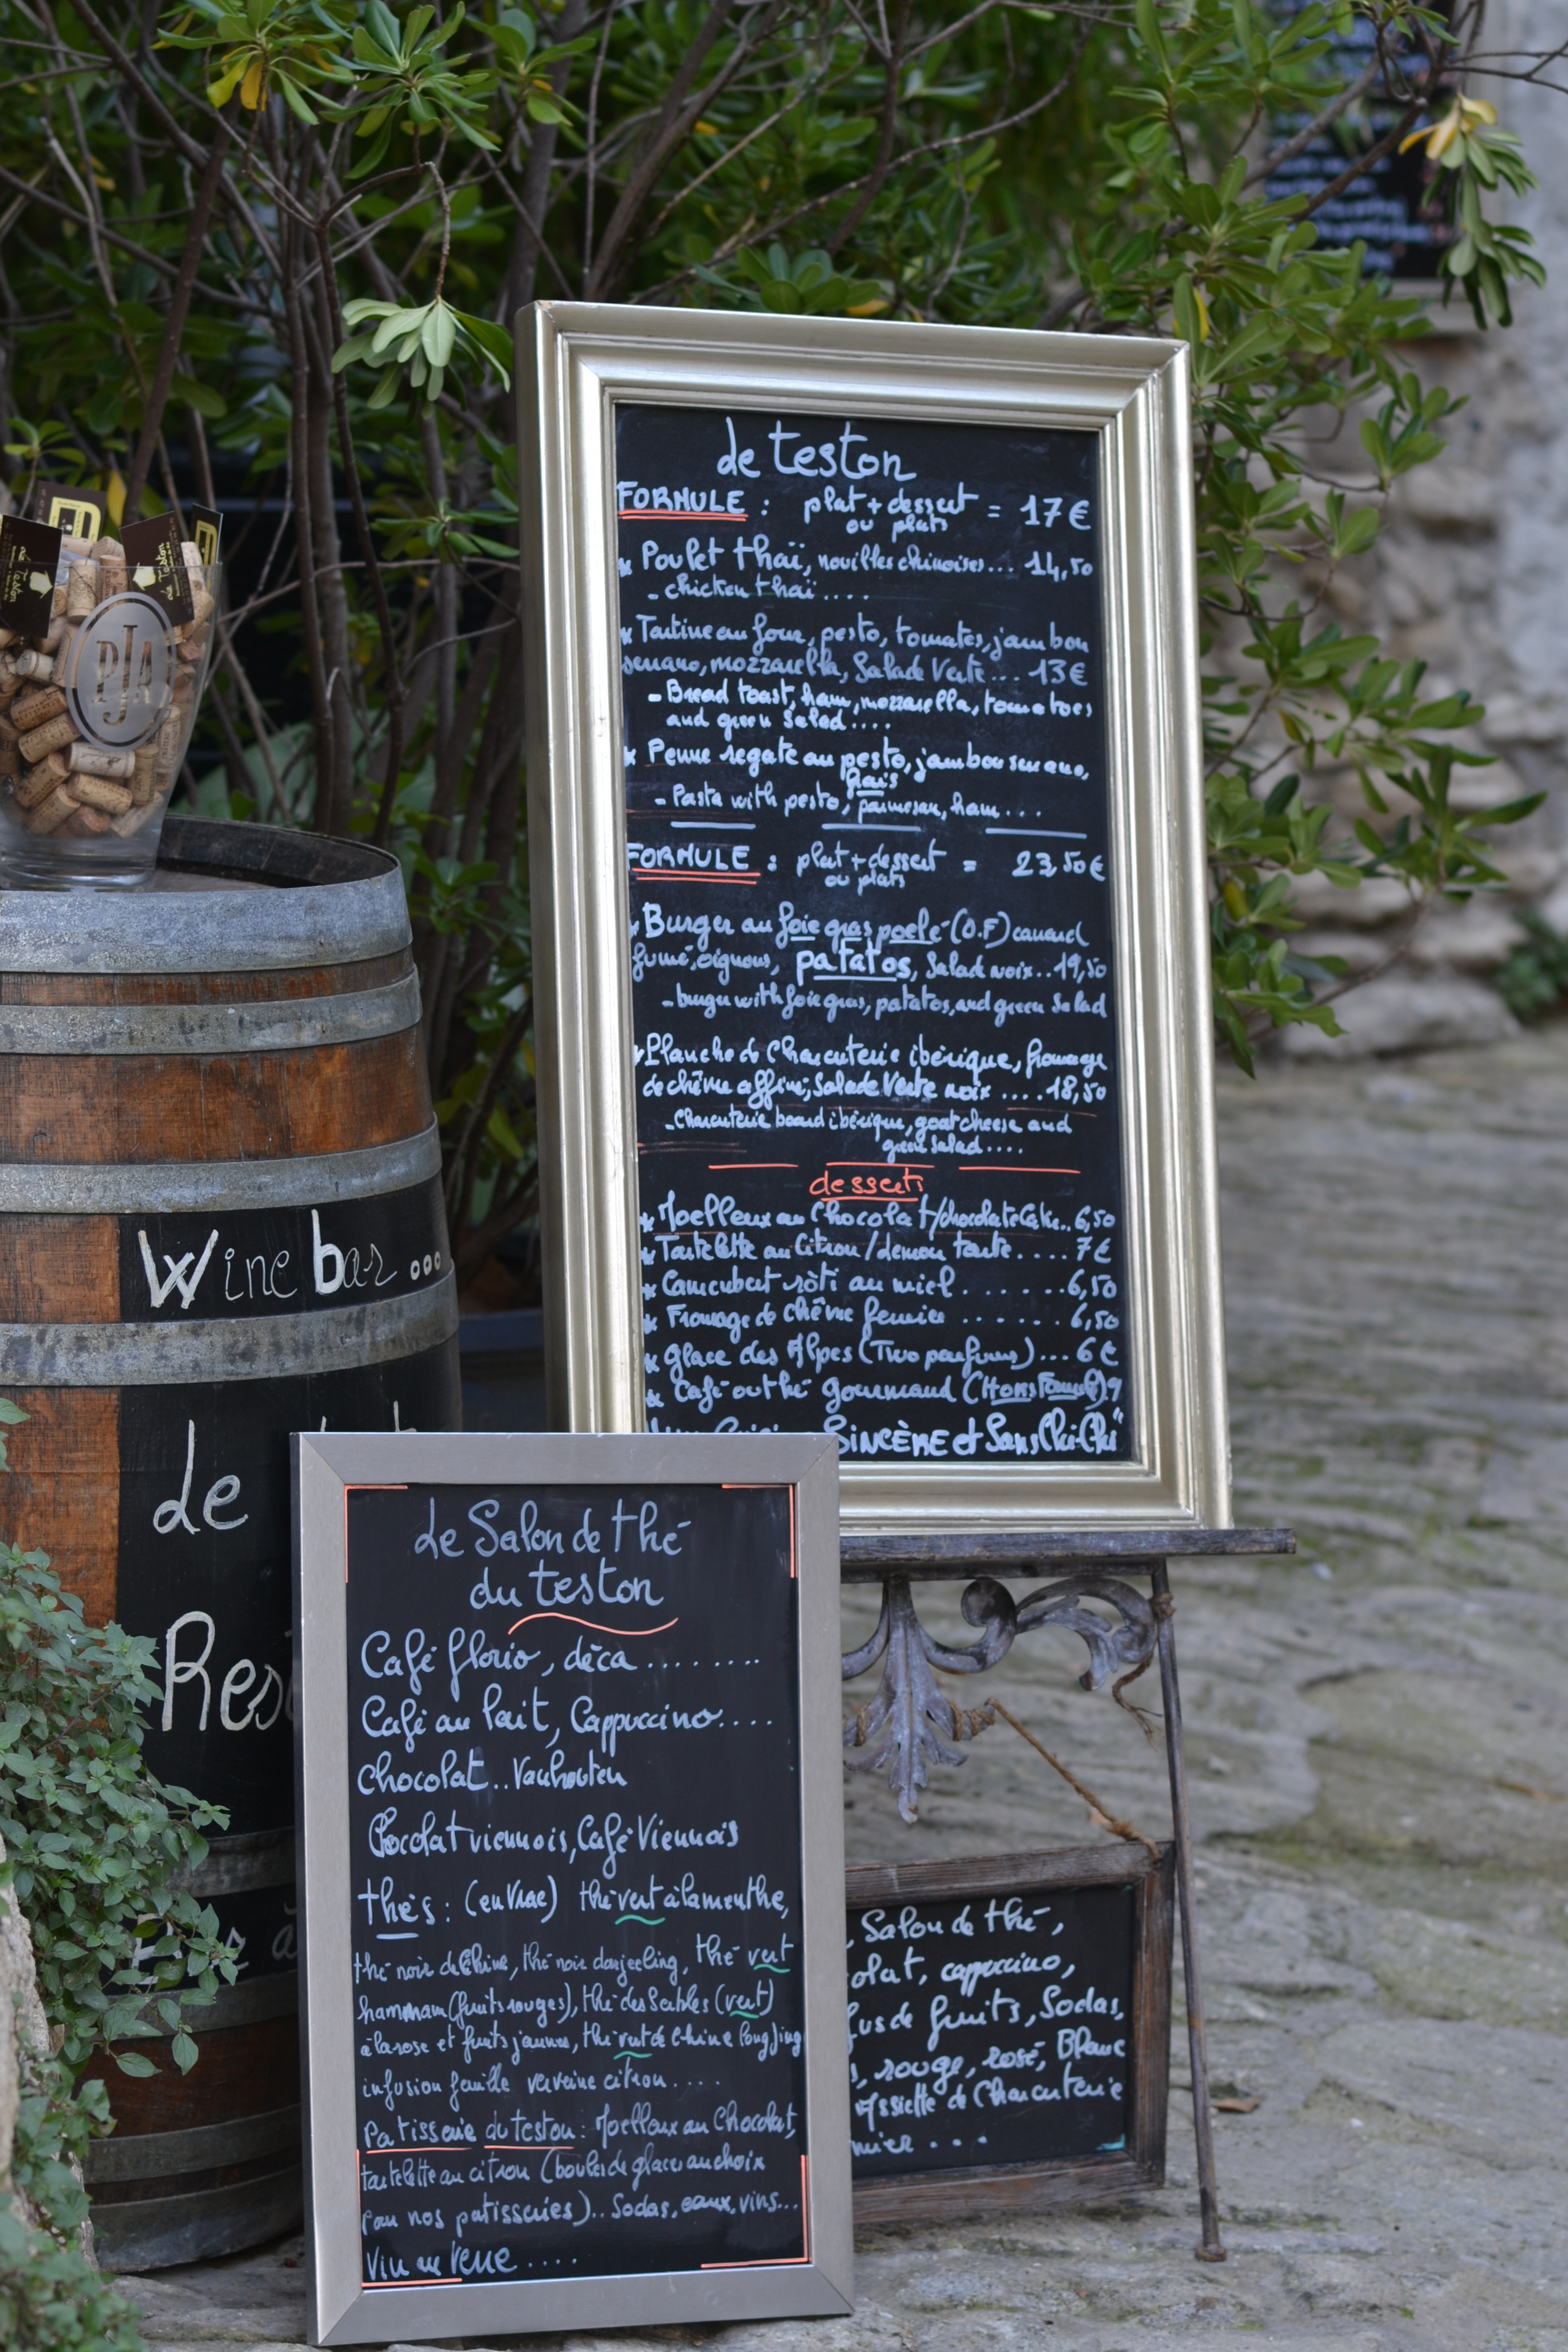 Le teston
FORMULE : plat + dessert = 17€
ou plats
* Poulet thaï, nouilles chinoises... 14,50
- chicken thaï ....
* Tartine au four, pesto, tomates, jambon
serrano, mozzarella, Salade Verte... 13€
- Bread toast, ham, mozzarella, tomatoes
and green Salad ....
* Penne regate au pesto, jambon serrano,
frais
- Pasta with pesto, parmesan, ham....
FORMULE : plat + dessert = 23,50€
ou plats
* Burger au foie gras poelé (O.F) canard
fumé, oignons, patatos, Salad noix.. 19,50
- burger with foie gras, patatos, and green Salad
* Planche de Charcuterie ibérique, fromage
de chèvre affiné, Salade Verte noix .... 18,50
- Charcuterie board ibérique, goat cheese and
green Salad ....
desserts
* Moelleux au Chocolat/chocolate Cake.. 6,50
* Tartelette au Citron / Lemon tarte .... 7€
* Camembert rôti au miel ....... 6,50
* Fromage de chèvre fermier ...... 6,50
* Glace des Alpes (Two parfums)... 6€
* Café ou thé gourmand (Hors Formule) 9
SINCÈRE et Sans Chi-Chi"
Wine bar ...
Le
PJA
Le Salon de thé
du teston
Café florio, déca ........
Café au lait, Cappuccino....
Chocolat.. Vanhouten
Chocolat viennois, Café Viennois
thés : (en Vrac) thé vert à la menthe,
thé noir de Chine, thé noir darjeeling, thé vert
hammam (fruits rouges), thé des Sables (vert)
à la rose et fruits jaunes, thé vert de Chine Long Jing
infusion feuille verveine citron....
Patisserie du teston : Moelleux au Chocolat,
tartelette au citron (boules de glaces au choix
par nos patisseries).. Sodas, eaux, vins...
Vin au Verre ....
Salon de thé,
cappuccino,
de fruits, Sodas,
rouge, rosé, Blanc
Assiette de Charcuterie